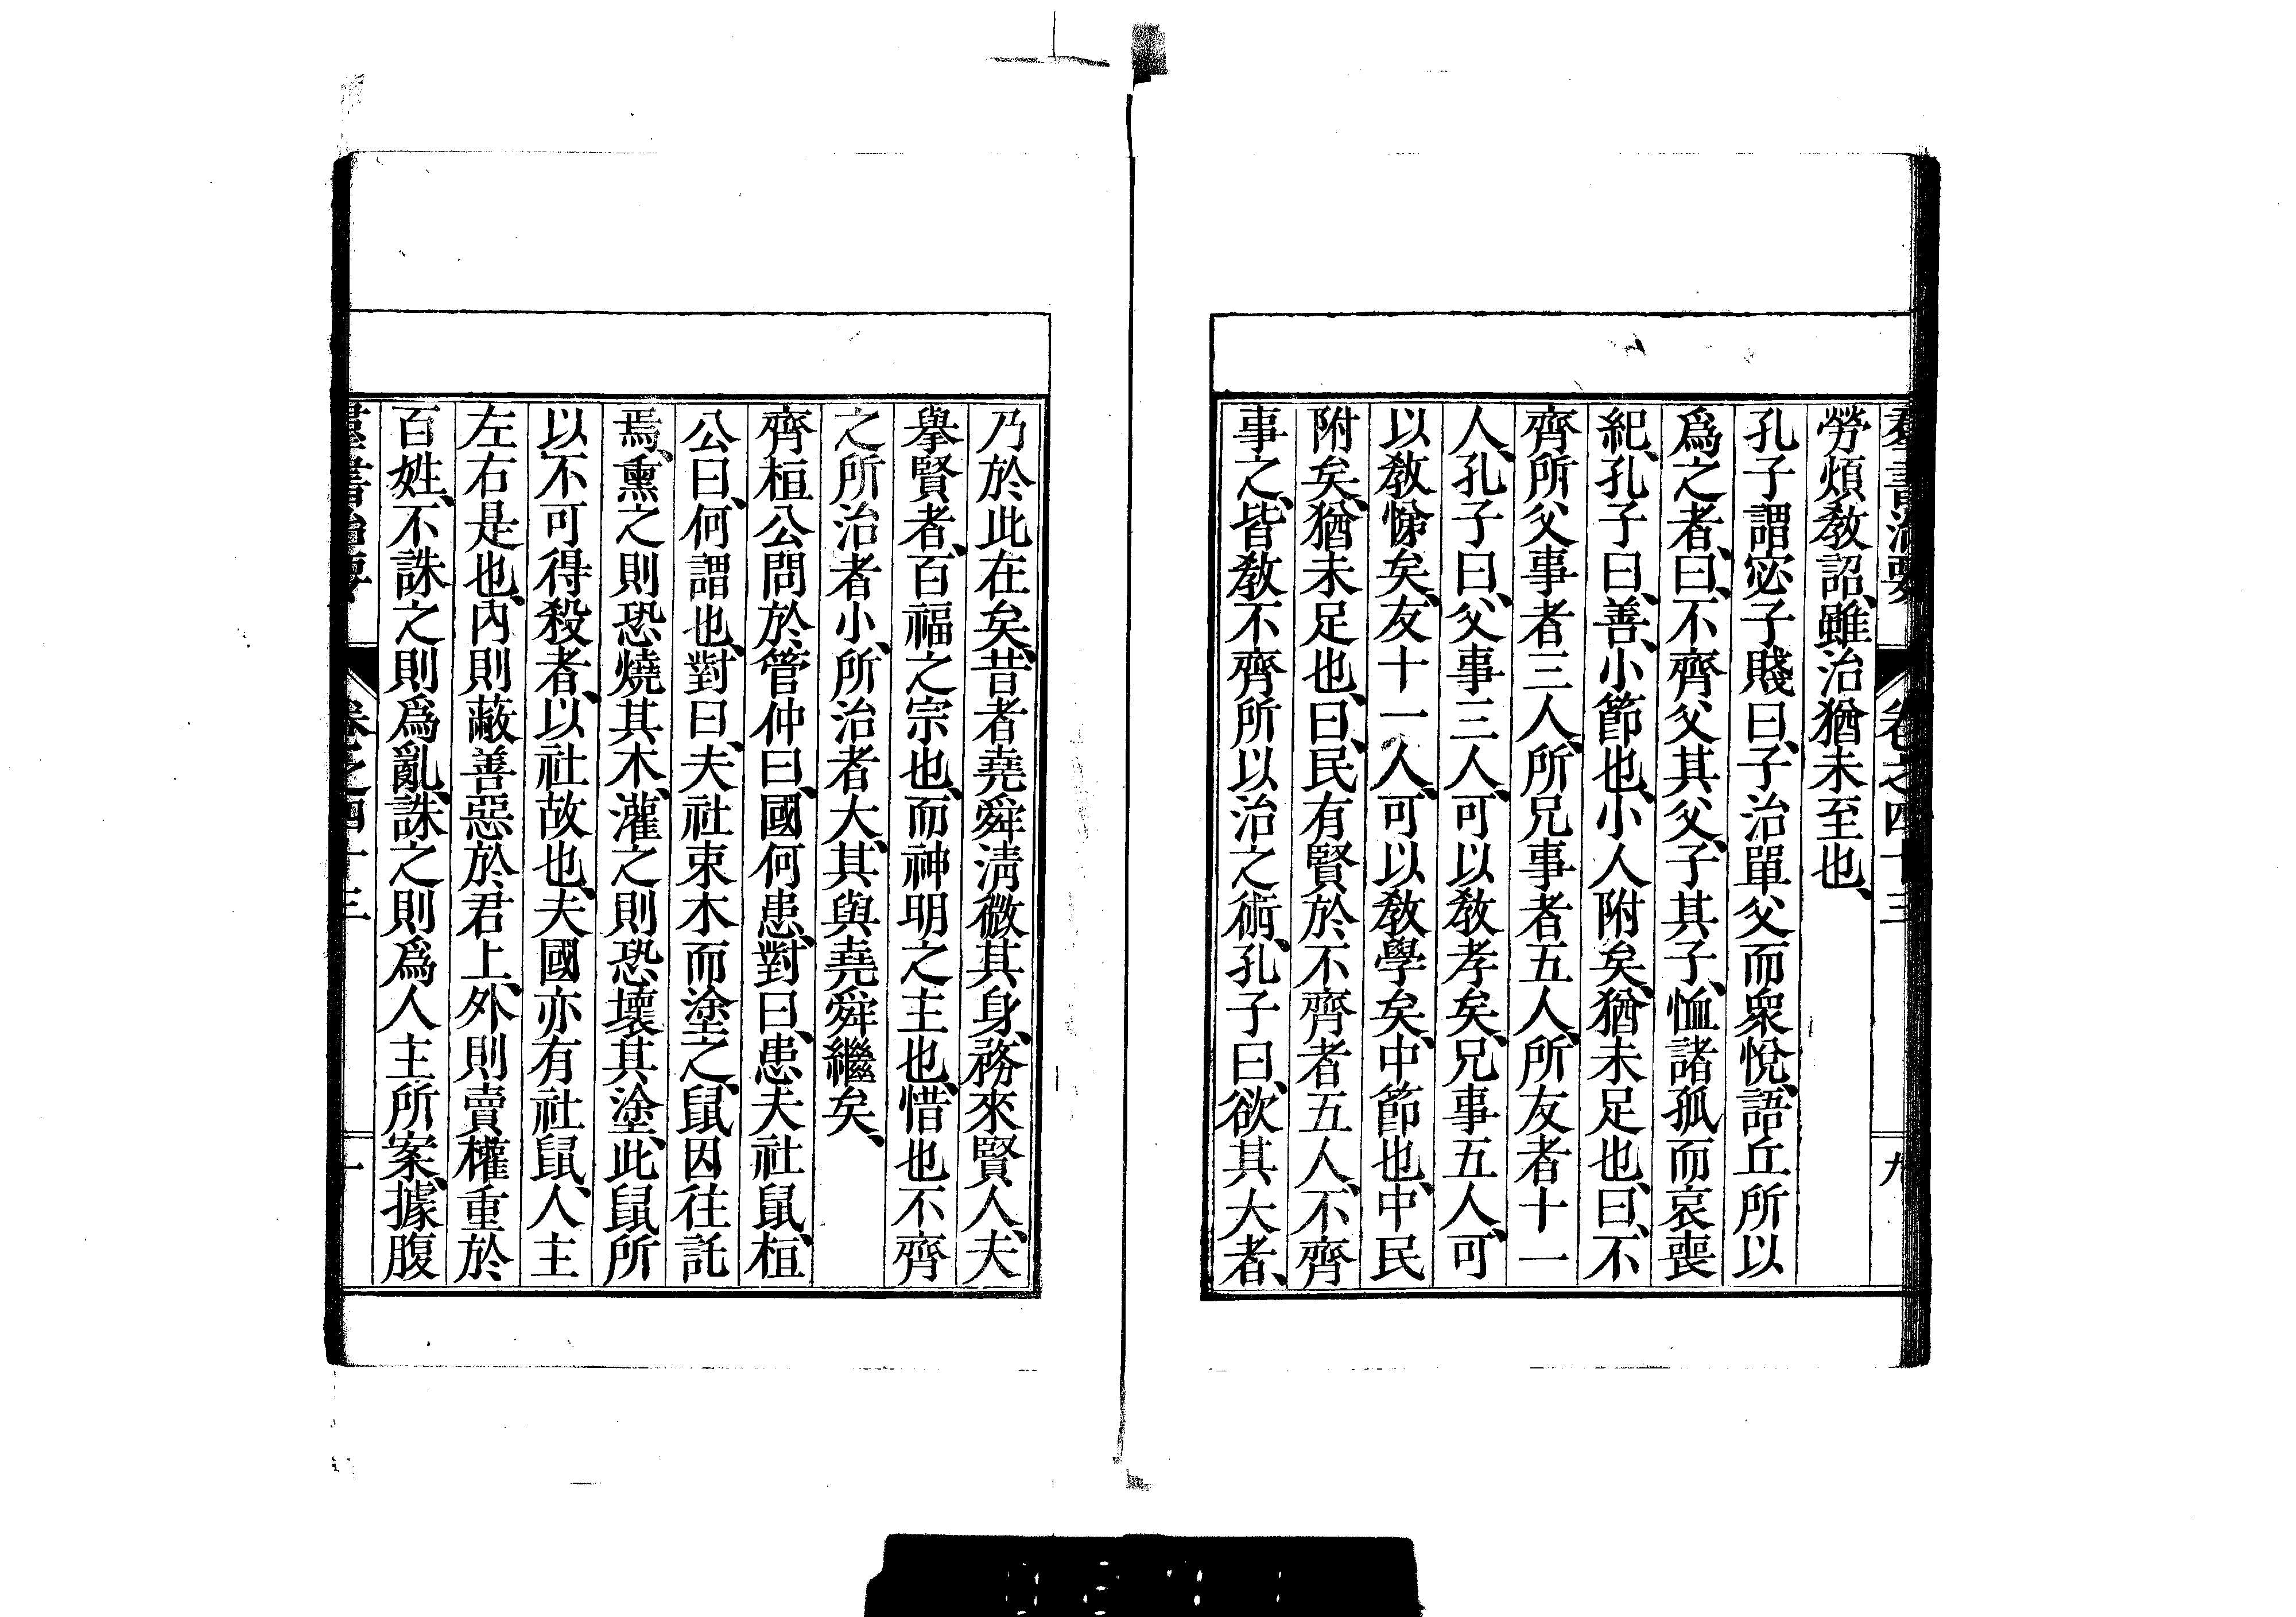 群書治要 卷之四十三 九
勞煩敎詔、雖治猶未至也、
孔子謂宓子賤曰、子治單父而衆悅、語丘所以
爲之者、曰、不齊父其父、子其子、恤諸孤而哀喪
紀、孔子曰、善、小節也、小人附矣、猶未足也、曰、不
齊所父事者三人、所兄事者五人、所友者十一
人、孔子曰、父事三人、可以敎孝矣、兄事五人、可
以敎悌矣、友十一人、可以敎學矣、中節也、中民
附矣、猶未足也、曰、民有賢於不齊者五人、不齊
事之、皆敎不齊所以治之術、孔子曰、欲其大者、
乃於此在矣、昔者堯舜淸微其身、務來賢人、夫
擧賢者、百福之宗也、而神明之主也、惜也不齊
之所治者小、所治者大、其與堯舜繼矣、
齊桓公問於管仲曰、國何患、對曰、患夫社鼠、桓
公曰、何謂也、對曰、夫社束木而塗之、鼠因往託
焉、熏之則恐燒其木、灌之則恐壞其塗、此鼠所
以不可得殺者、以社故也、夫國亦有社鼠、人主
左右是也、內則蔽善惡於君上、外則賣權重於
百姓、不誅之則爲亂、誅之則爲人主所案、據腹
群書治要 卷之四十三